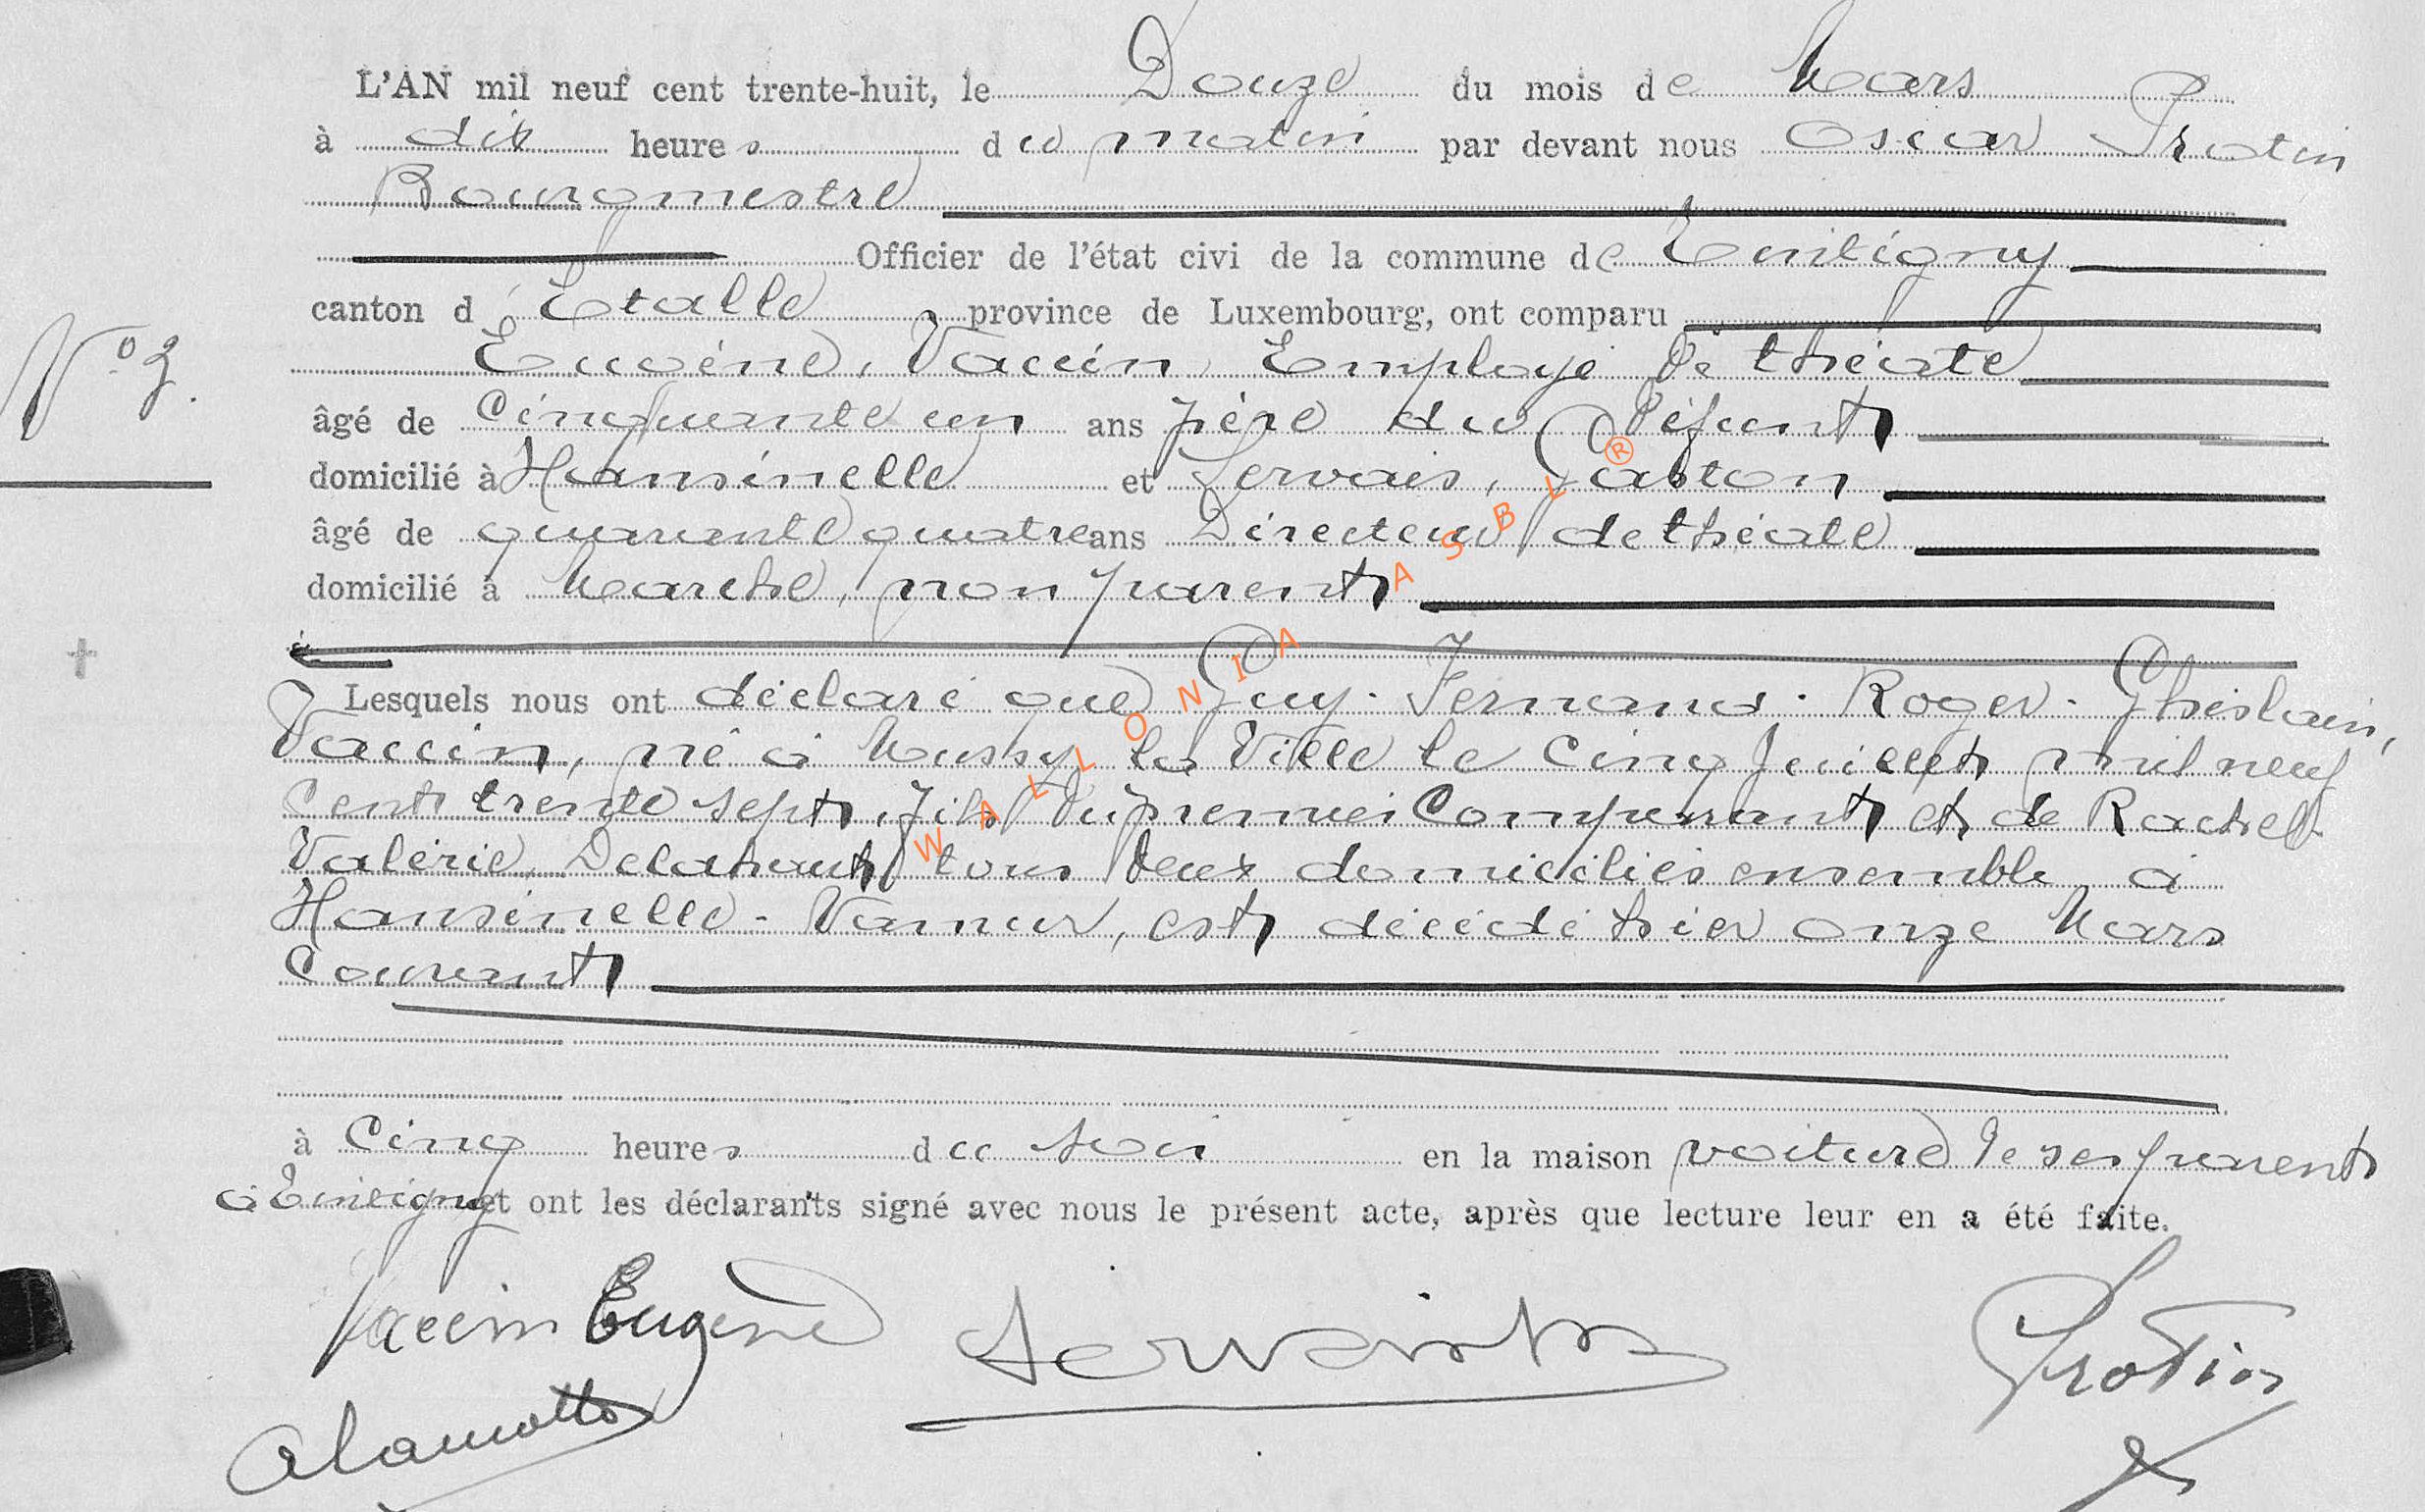 L'AN mil neuf cent trente-huit, le Douze du mois de Mars
à dix heures du matin par devant nous Oscar Protin
Bourgmestre
Officier de l'état civi de la commune de Tintigny
canton d'Etalle province de Luxembourg, ont comparu
N° 3.
Eugène, Vaccin, Employé de théâte
âgé de Cinquante un ans père du défunt
domicilié à Hansinelle et Servais, Gaston
âgé de quarante quatre ans Directeur de théâte
domicilié à Marche, non parent
Lesquels nous ont déclaré que Guy. Fernand. Roger. Ghislain,
Vaccin, né à Mussy la Ville le Cinq Juillet mil neuf
Cent trente sept, fils du premier Comparant et de Rachel
Valérie, Delahaut tous deux domiciliés ensemble à
Hansinelle - Namur, est décédé hier onze Mars
Courant
à Cinq heures du soir en la maison voiture de ses parents
à Tintigny et ont les déclarants signé avec nous le présent acte, après que lecture leur en a été faite.
Vaccin Eugène Servais Protin
WALLONIA ASBL ®